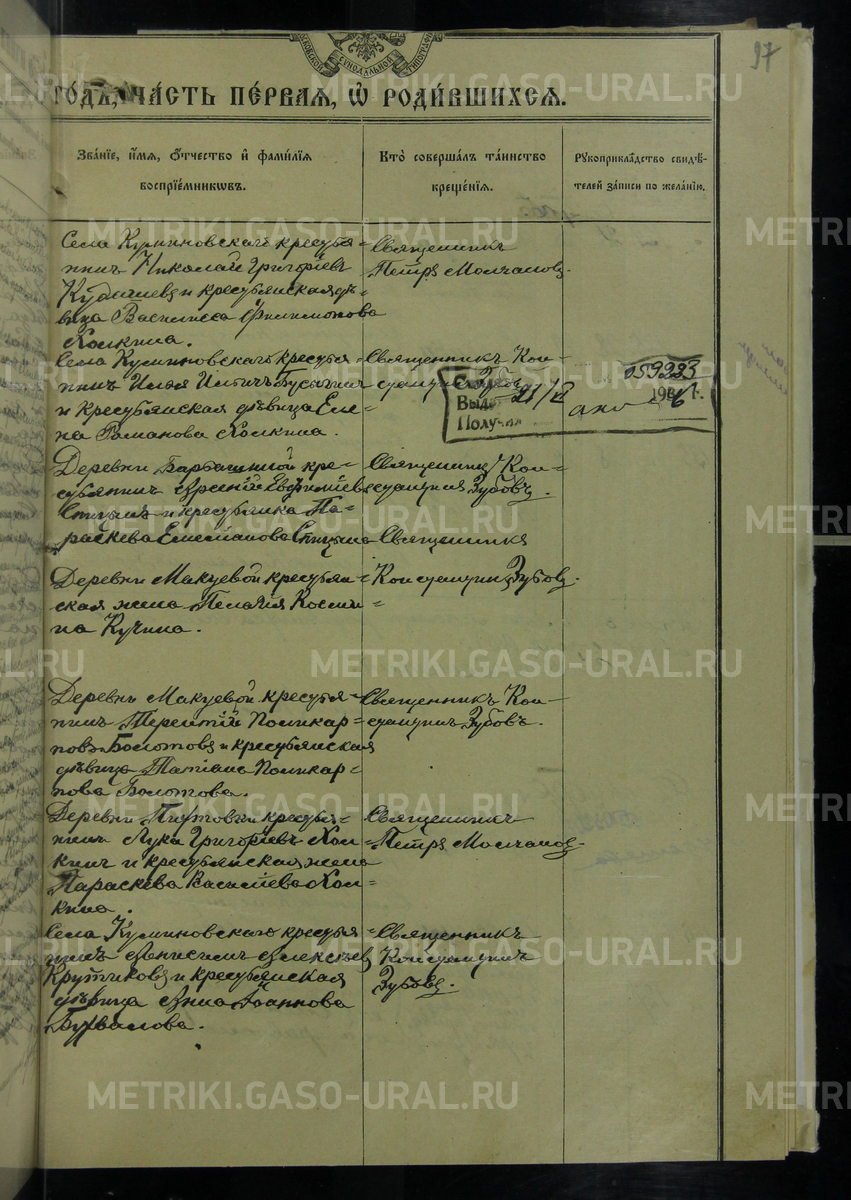 97
МОСКОВСКОЙ СѴНОДАЛЬНОЙ ТИПОГРАФІИ
ГО́ДЪ, ЧА́СТЬ ПЕ́РВАЯ, Ѿ РОДИ́ВШИХСЯ.
Зва́нїе, и́мя, ѻ́тчество и҆ фами́лїя
воспрїе́мниковъ.
Кто̀ соверша́лъ та́инство
креще́нїя.
Рꙋкоприкла́дство свидѣ́-
телей за́писи по жела́нїю.
Села Куминовскаго крестья-
нинъ Николай Григоріевъ
и крестьянская дѣ-
вица Василиса Филимонова
Холкина.
Священникъ
Петръ Молчановъ.
Села Куминовскаго крестья-
нинъ Илія
и крестьянская дѣвица Еле-
на Романова Холкина.
Священникъ Кон-
стантинъ Зубовъ
059223
21/II
Выд
Получил
Деревни Барбашиной кре-
стьянинъ Арсеній Евфиміевъ
Спицынъ и крестьянка Па-
раскева Емелианова Спицына
Священникъ Кон-
стантинъ Зубовъ.
Деревни Макуевой крестьян-
ская жена Пелагія Косми-
на Кучина.
Священникъ
Константинъ Зубовъ.
Деревни Макуевой крестья-
нинъ Терентій Поликар-
повъ Болотовъ и крестьянская
дѣвица Татіана Поликар-
пова Болотова.
Священникъ Кон-
стантинъ Зубовъ.
Деревни крестья-
нинъ Лука Григоріевъ Хол-
кинъ и крестьянская жена
Параскева Василіева Хол-
кина.
Священникъ
Петръ Молчановъ.
Села Куминовскаго крестья-
нинъ Анисимъ Алексѣевъ
Крутиковъ и крестьянская
дѣвица Анна Іоаннова
Бурвалова.
Священникъ
Константинъ
Зубовъ.
METRIKI.GASO-URAL.RU